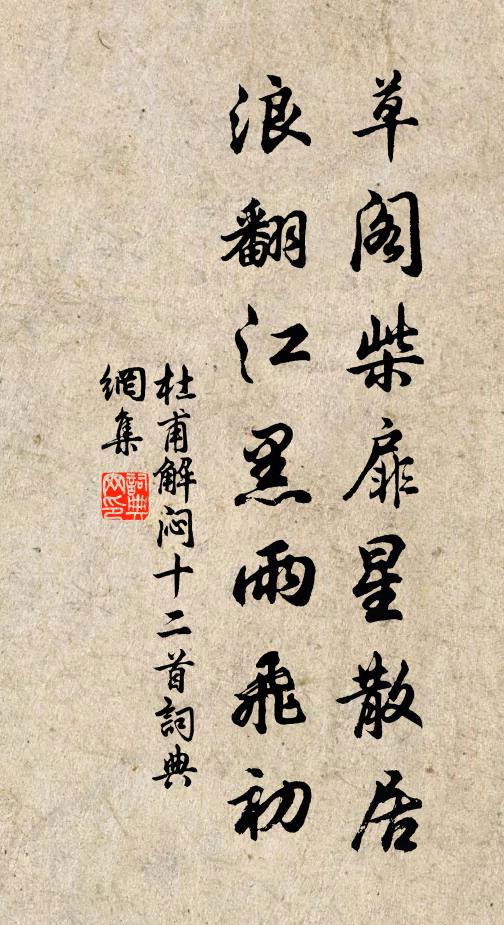 草阁柴扉星散居
浪翻江黑雨飛初
杜甫解闷十二首詞典
網集
詞典
网印